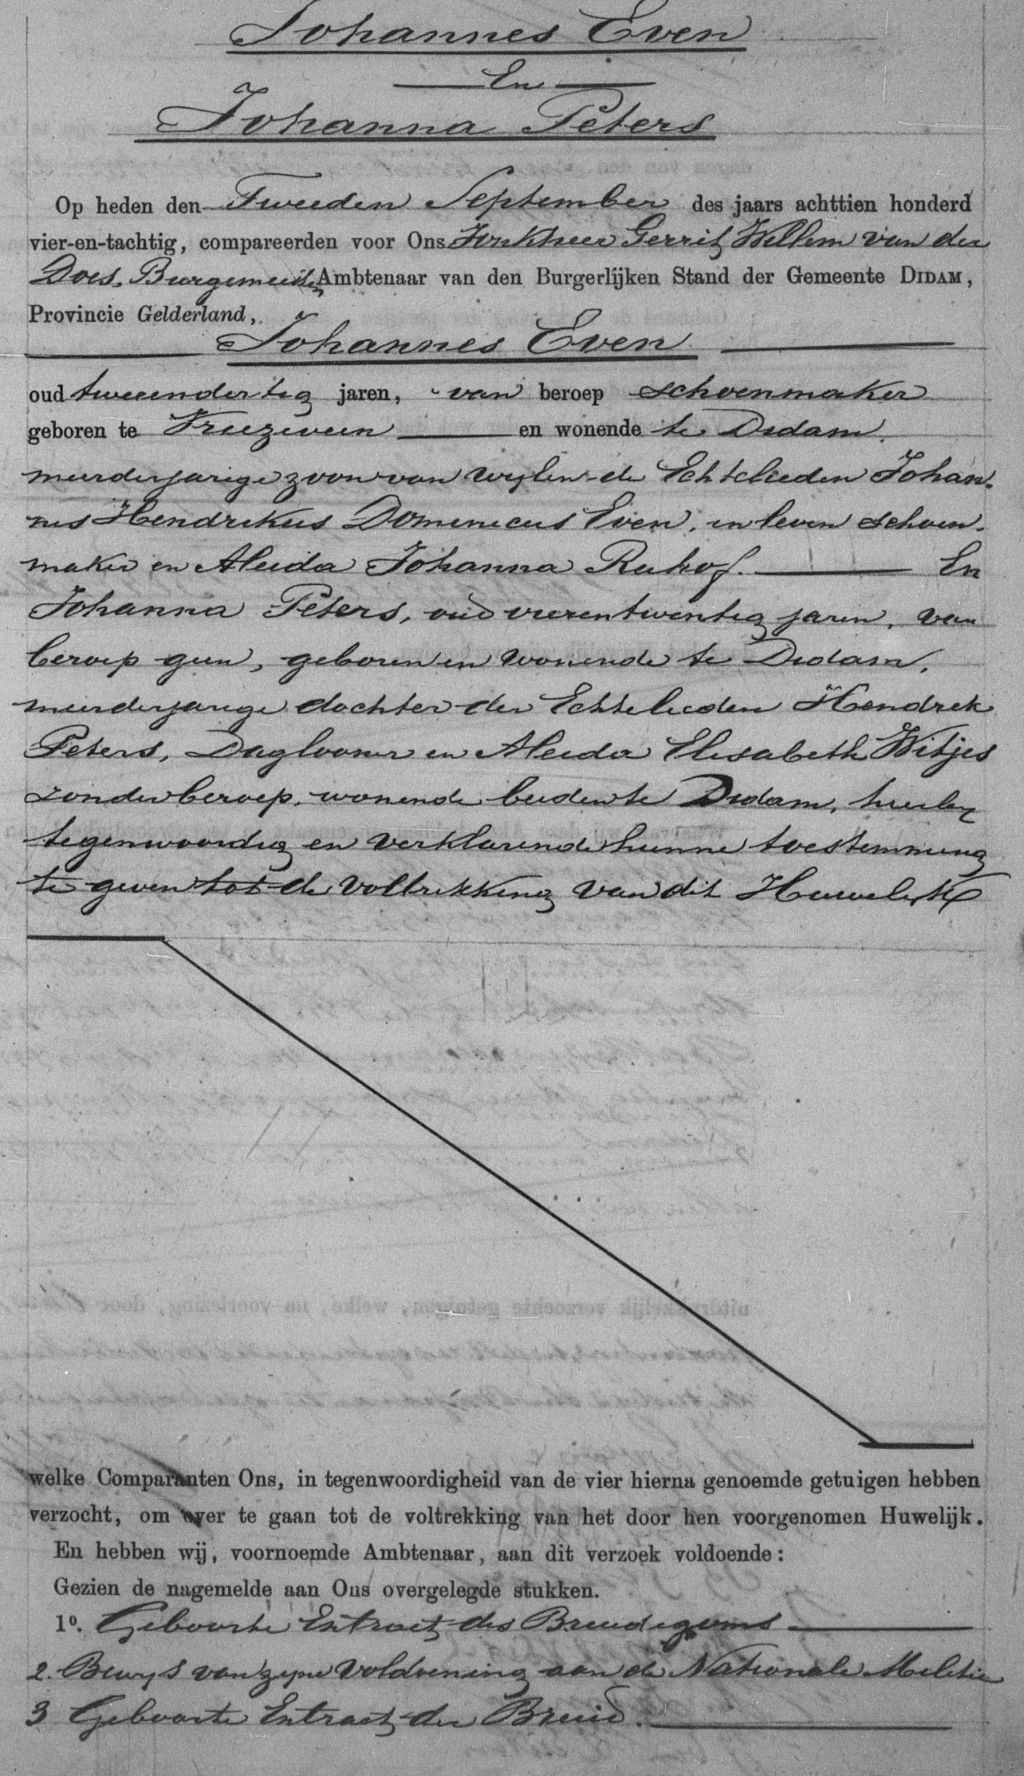 Johannes Even
En
Johanna Peters
Op heden den Tweeden September des jaars achttien honderd
vier-en-tachtig, compareerden voor Ons Jonkheer Gerrit Willem van der
Does, Burgemeester Ambtenaar van den Burgerlijken Stand der Gemeente DIDAM,
Provincie Gelderland,
Johannes Even
oud tweeendertig jaren, van beroep schoenmaker
geboren te en wonende te Didam.
meerderjarige zoon van wylen de Echtelieden Johan-
nes Hendrikus Domenicus Even, in leven schoen-
maker en Aleida Johanna Ruhof. En
Johanna Peters, oud vierentwentig jaren, van
beroep geen, geboren en wonende te Didam,
meerderjarige dochter der Echtelieden Hendrik
Peters, Daglooner en Aleida Elisabeth Witjes
zonder beroep, wonende beiden te Didam, hierby
tegenwoordig en verklarende hunne toestemming
te geven tot de voltrekking van dit Huwelyk
welke Comparanten Ons, in tegenwoordigheid van de vier hierna genoemde getuigen hebben
verzocht, om over te gaan tot de voltrekking van het door hen voorgenomen Huwelijk.
En hebben wij, voornoemde Ambtenaar, aan dit verzoek voldoende:
Gezien de nagemelde aan Ons overgelegde stukken.
1º. Geboorte Extract des Bruidegoms
2. Bewys van zyne voldoening aan de Nationale Militie
3 Geboorte Extract der Bruid.